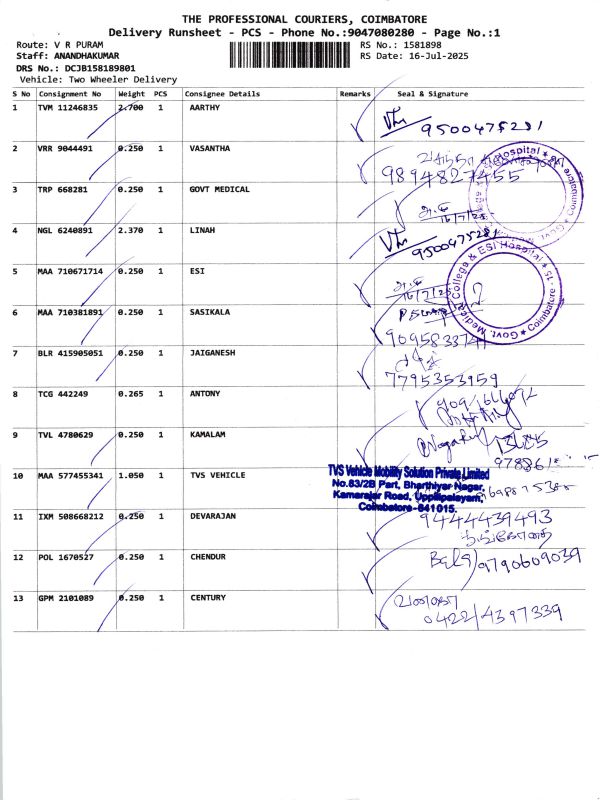 THE PROFESSIONAL COURIERS, COIMBATORE
Delivery Runsheet - PCS - Phone No.:9047080280 - Page No.:1
Route: V R PURAM
RS No.: 1581898
Staff: ANANDHAKUMAR
RS Date: 16-Jul-2025
DRS No.: DCJB158189801
Vehicle: Two Wheeler Delivery
S No Consignment No Weight PCS Consignee Details Remarks Seal & Signature
1 TVM 11246835 2.700 1 AARTHY
9500475281
2 VRR 9044491 0.250 1 VASANTHA
9894827455
3 TRP 668281 0.250 1 GOVT MEDICAL
16/7/25
4 NGL 6240891 2.370 1 LINAH
9500475281
5 MAA 710671714 0.250 1 ESI
16/7/25
College & ESI Hospital
Coimbatore - 15
Govt. Medical
6 MAA 710381891 0.250 1 SASIKALA
7 BLR 415905051 0.250 1 JAIGANESH
7795353959
8 TCG 442249 0.265 1 ANTONY
9 TVL 4780629 0.250 1 KAMALAM
10 MAA 577455341 1.050 1 TVS VEHICLE
TVS Vehicle Mobility Solution Private Limited
No.83/2B Part, Bharthiyar Nagar,
Kamarajar Road, Uppilipalayam,
Coimbatore-641015.
11 IXM 508668212 0.250 1 DEVARAJAN
9444439493
12 POL 1670527 0.250 1 CHENDUR
9790609039
13 GPM 2101089 0.250 1 CENTURY
0422/4397339